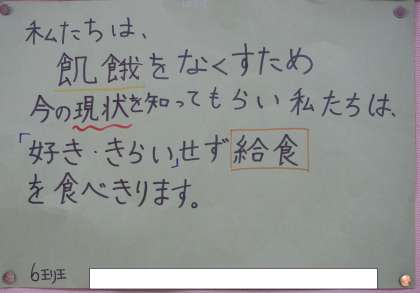 私たちは、
飢餓をなくすため
今の現状を知ってもらい私たちは、
「好き・きらい」せず給食
を食べきります。
6班